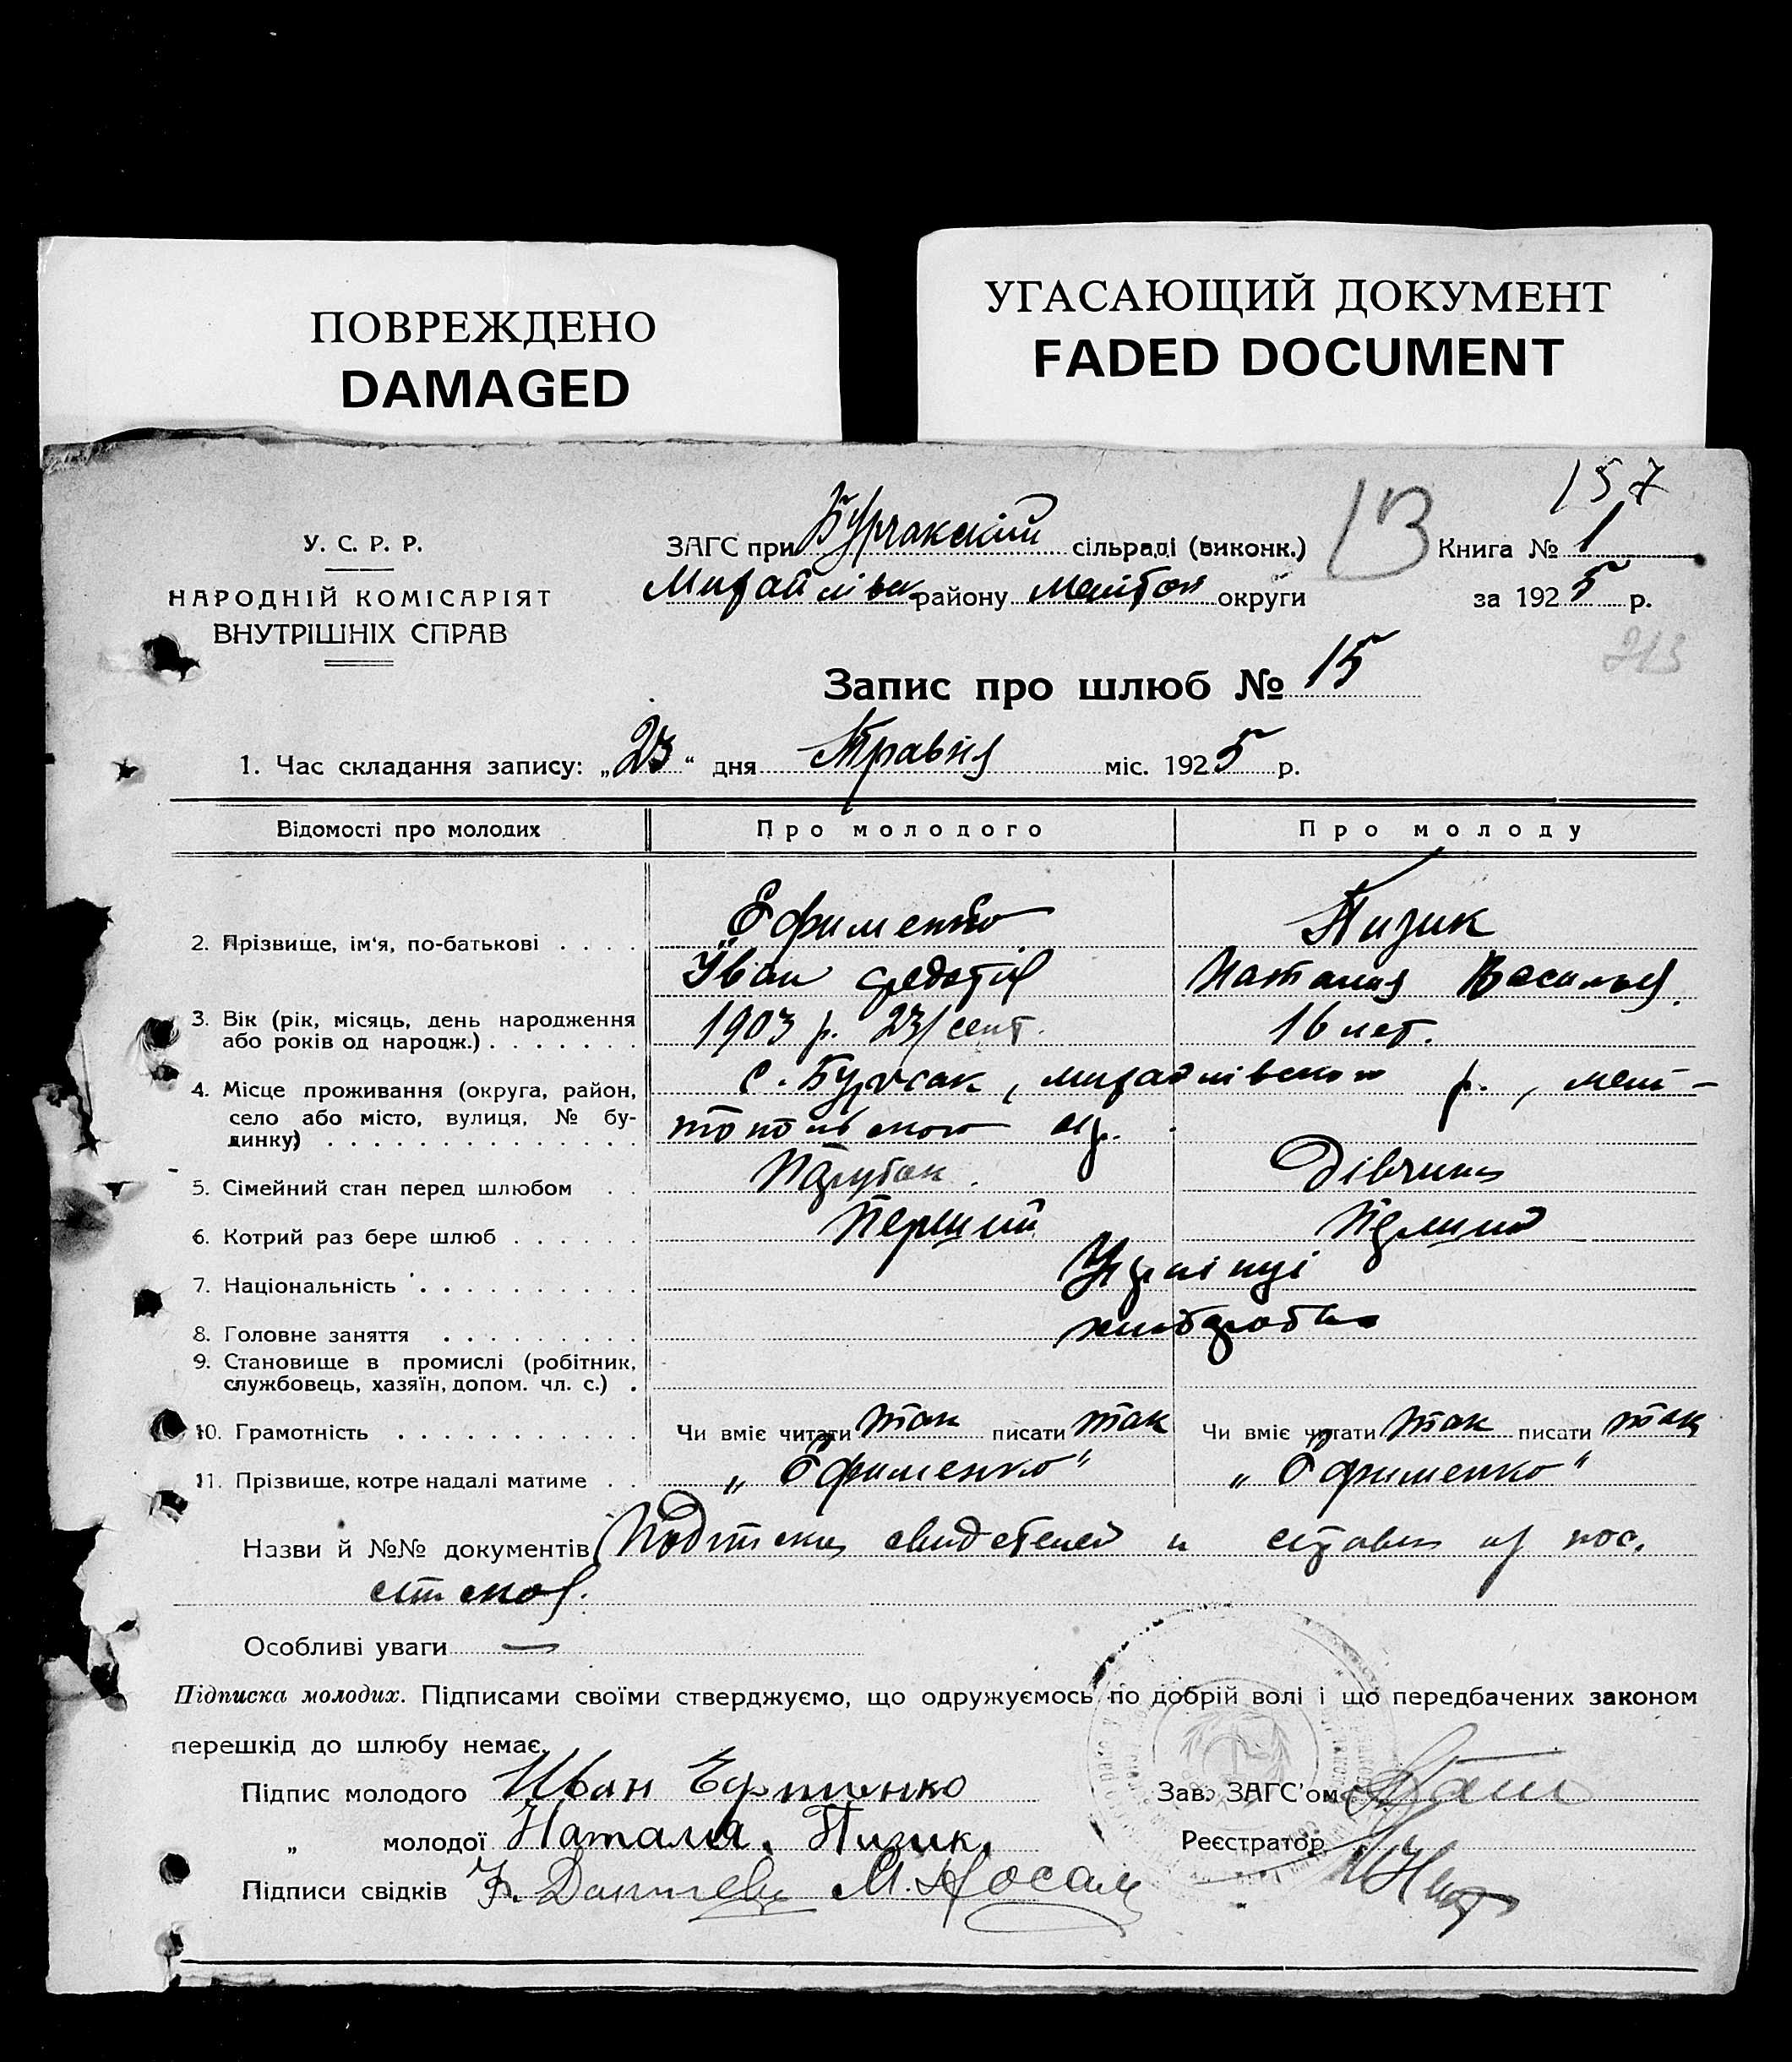 ПОВРЕЖДЕНО
DAMAGED
УГАСАЮЩИЙ ДОКУМЕНТ
FADED DOCUMENT
157
13
У. С. Р. Р.
НАРОДНІЙ КОМІСАРІЯТ
ВНУТРІШНІХ СПРАВ
ЗАГС при Бурчакскій сільраді (виконк.)
Книга № 1
Михайлівск району Мелітоп округи
за 1925 р.
213
Запис про шлюб № 15
1. Час складання запису: „23“ дня Травня міс. 1925 р.
Відомості про молодих Про молодого Про молоду
2. Прізвище, ім'я, по-батькові . . . . Ефименко Пизик
Іван Федотів Наталия Васильев.
3. Вік (рік, місяць, день народження
або років од народж.) . . . . . . . 1903 р. 23/сент. 16 лет.
4. Місце проживання (округа, район, с. Бурчак, михайлівского р., мелі-
село або місто, вулиця, № бу-
динку) . . . . . . . . . . . . . . . топольского окр.
5. Сімейний стан перед шлюбом . . Парубок. Дівчина
6. Котрий раз бере шлюб . . . . . . Перший Перший
7. Національність . . . . . . . . . . Українці
8. Головне заняття . . . . . . . . . хлібороби
9. Становище в промислі (робітник,
службовець, хазяїн, допом. чл. с.) .
10. Грамотність . . . . . . . . . . . Чи вміє читати так писати так Чи вміє читати так писати так
11. Прізвище, котре надалі матиме . . „Ефименко“ „Ефименко“
Назви й №№ документів Подписка свидетелей и справка из пос.
списков.
Особливі уваги —
Підписка молодих. Підписами своїми стверджуємо, що одружуємось по добрій волі і що передбачених законом
перешкід до шлюбу немає.
Підпис молодого Иван Ефименко
Зав. ЗАГС'ом
„ молодої Наталия Пизик.
Реєстратор
Підписи свідків М. Носаль